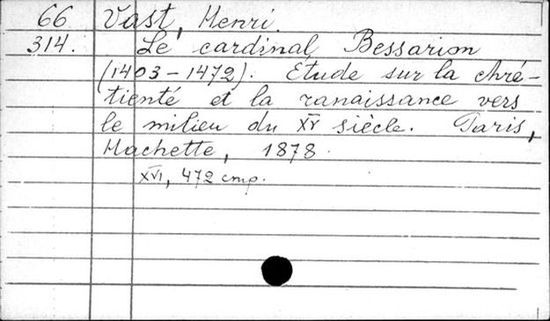 66 Vast, Henri
314. Le cardinal Bessarion
(1403-1472). Étude sur la chré-
tienté et la ranaissance vers
le milieu du XV siècle. Paris,
Hachette, 1878.
XVI, 472 стр.